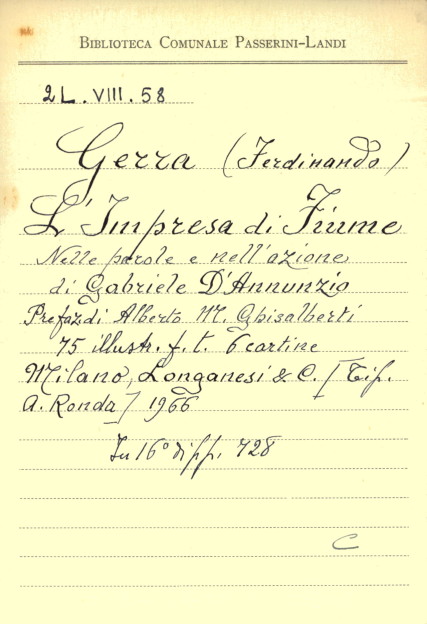 BIBLIOTECA COMUNALE PASSERINI-LANDI
2L. VIII. 58
Gerra (Ferdinando)
L'Impresa di Fiume
Nelle parole e nell'azione
di Gabriele D'Annunzio
Prefaz. di Alberto M. Ghisalberti
75 illustr. f. t. 6 cartine
Milano, Longanesi & C. [Tip.
A. Ronda] 1966
In 16° di pp. 728
C